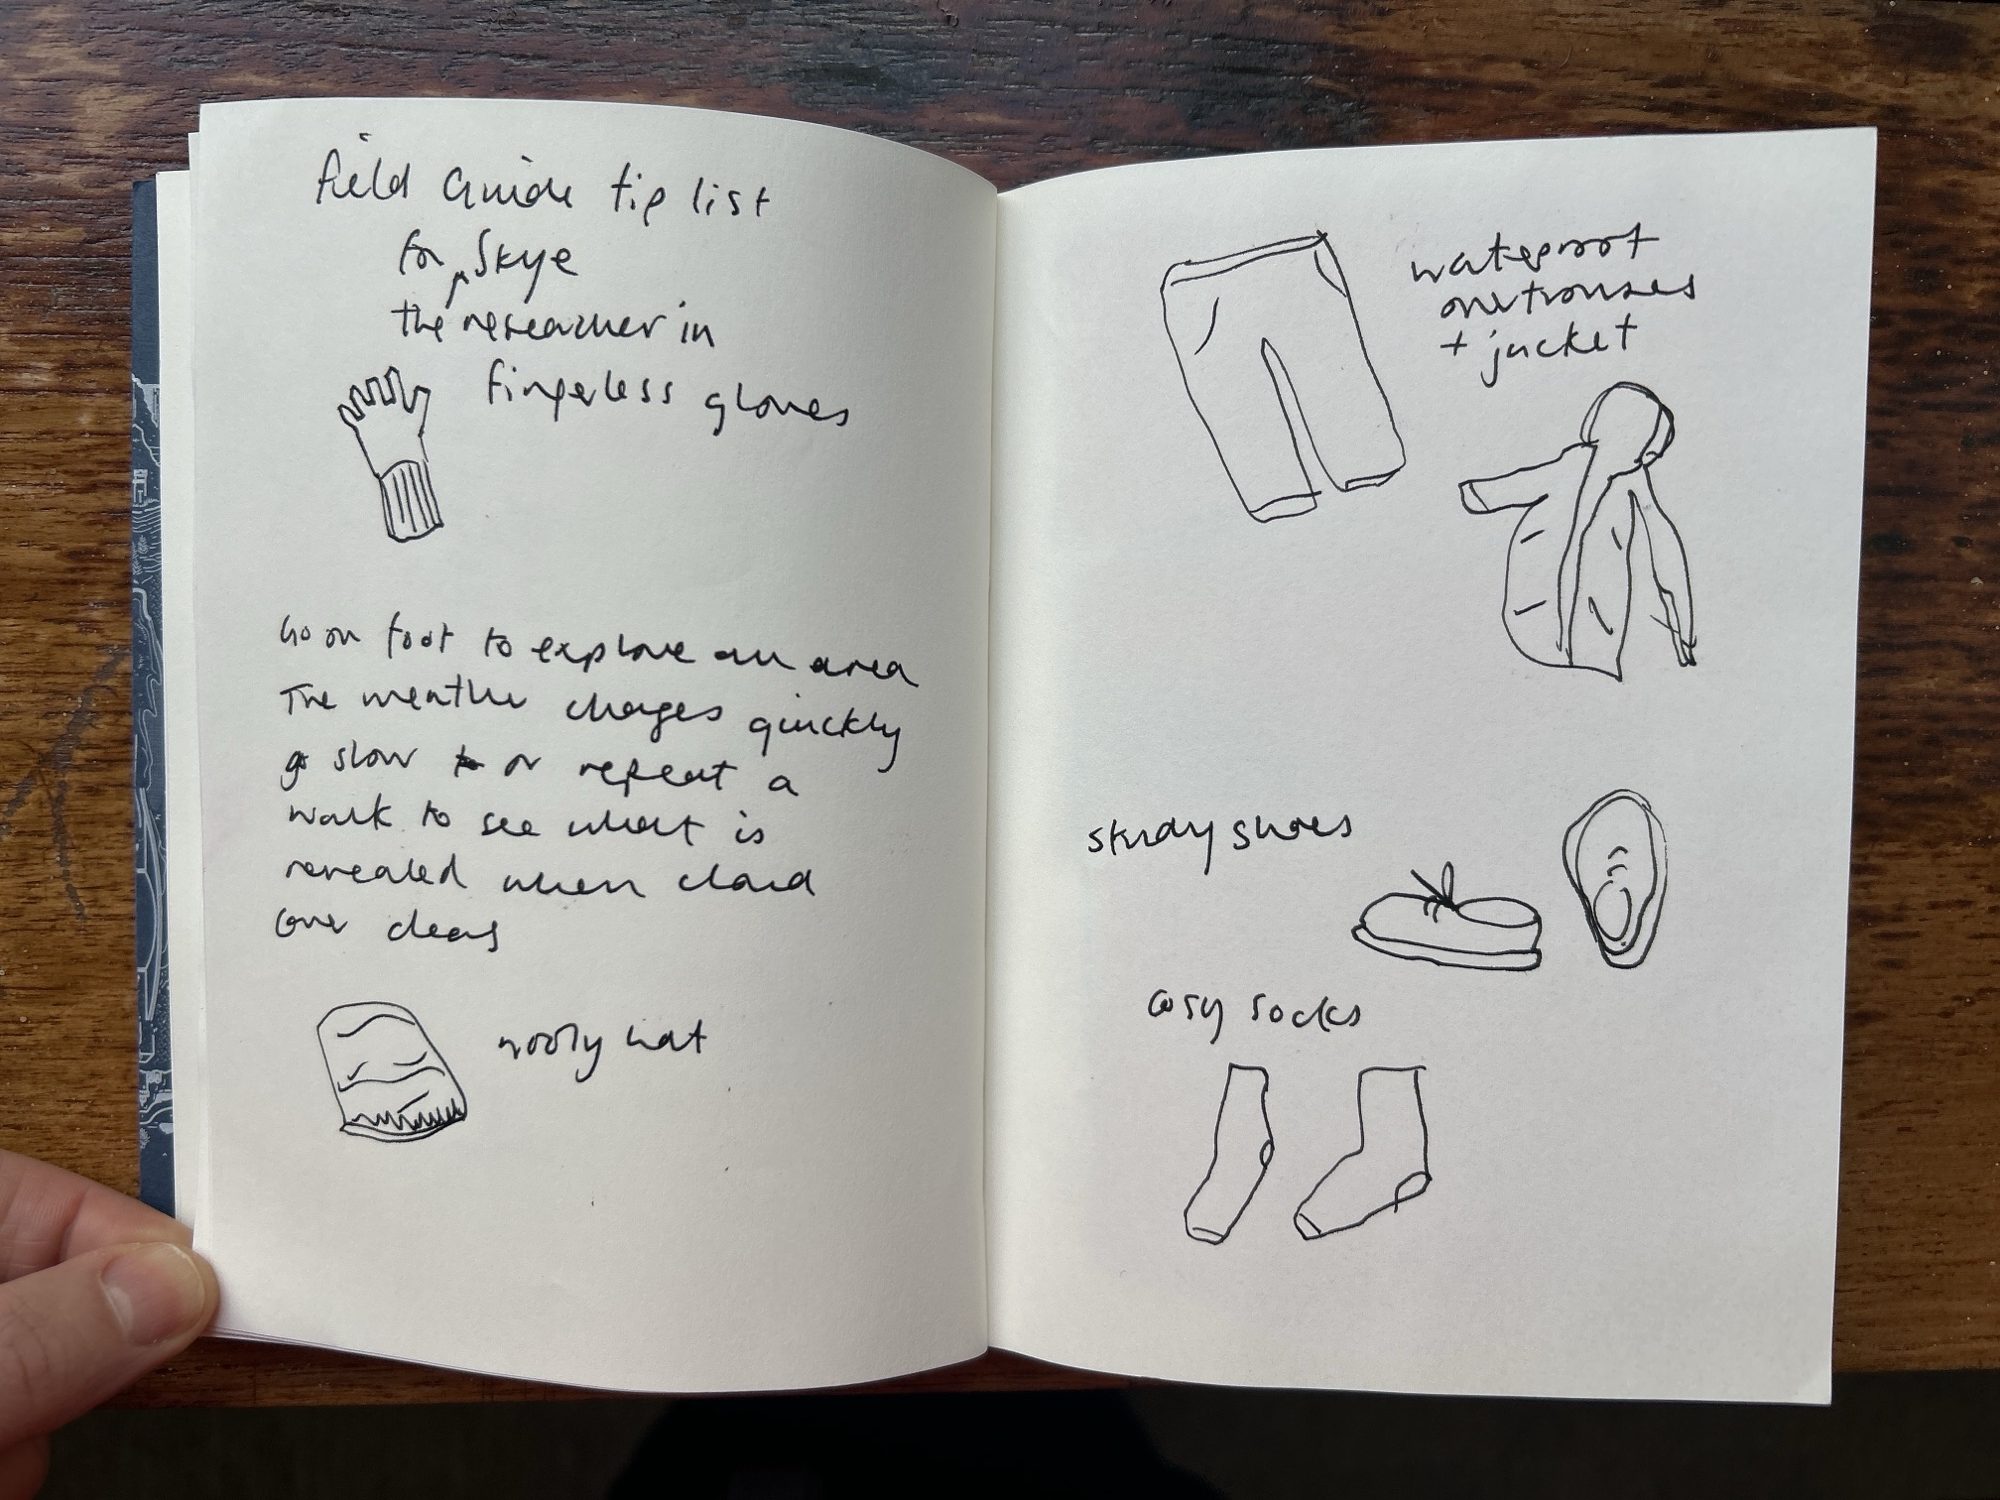 field Guide tip list
for Skye
the researcher in
fingerless gloves
Go on foot to explore an area
The weather changes quickly
go slow or repeat a
walk to see what is
revealed when cloud
cover clears
wooly hat
waterproof
overtrouses
+ jacket
sturdy shoes
cosy socks